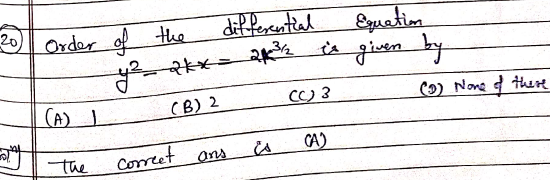 20) Order of the differential Equation
y² - 2kx = 2k^3/2 is given by
(A) 1 (B) 2 (C) 3 (D) None of these
The correct ans is (A)